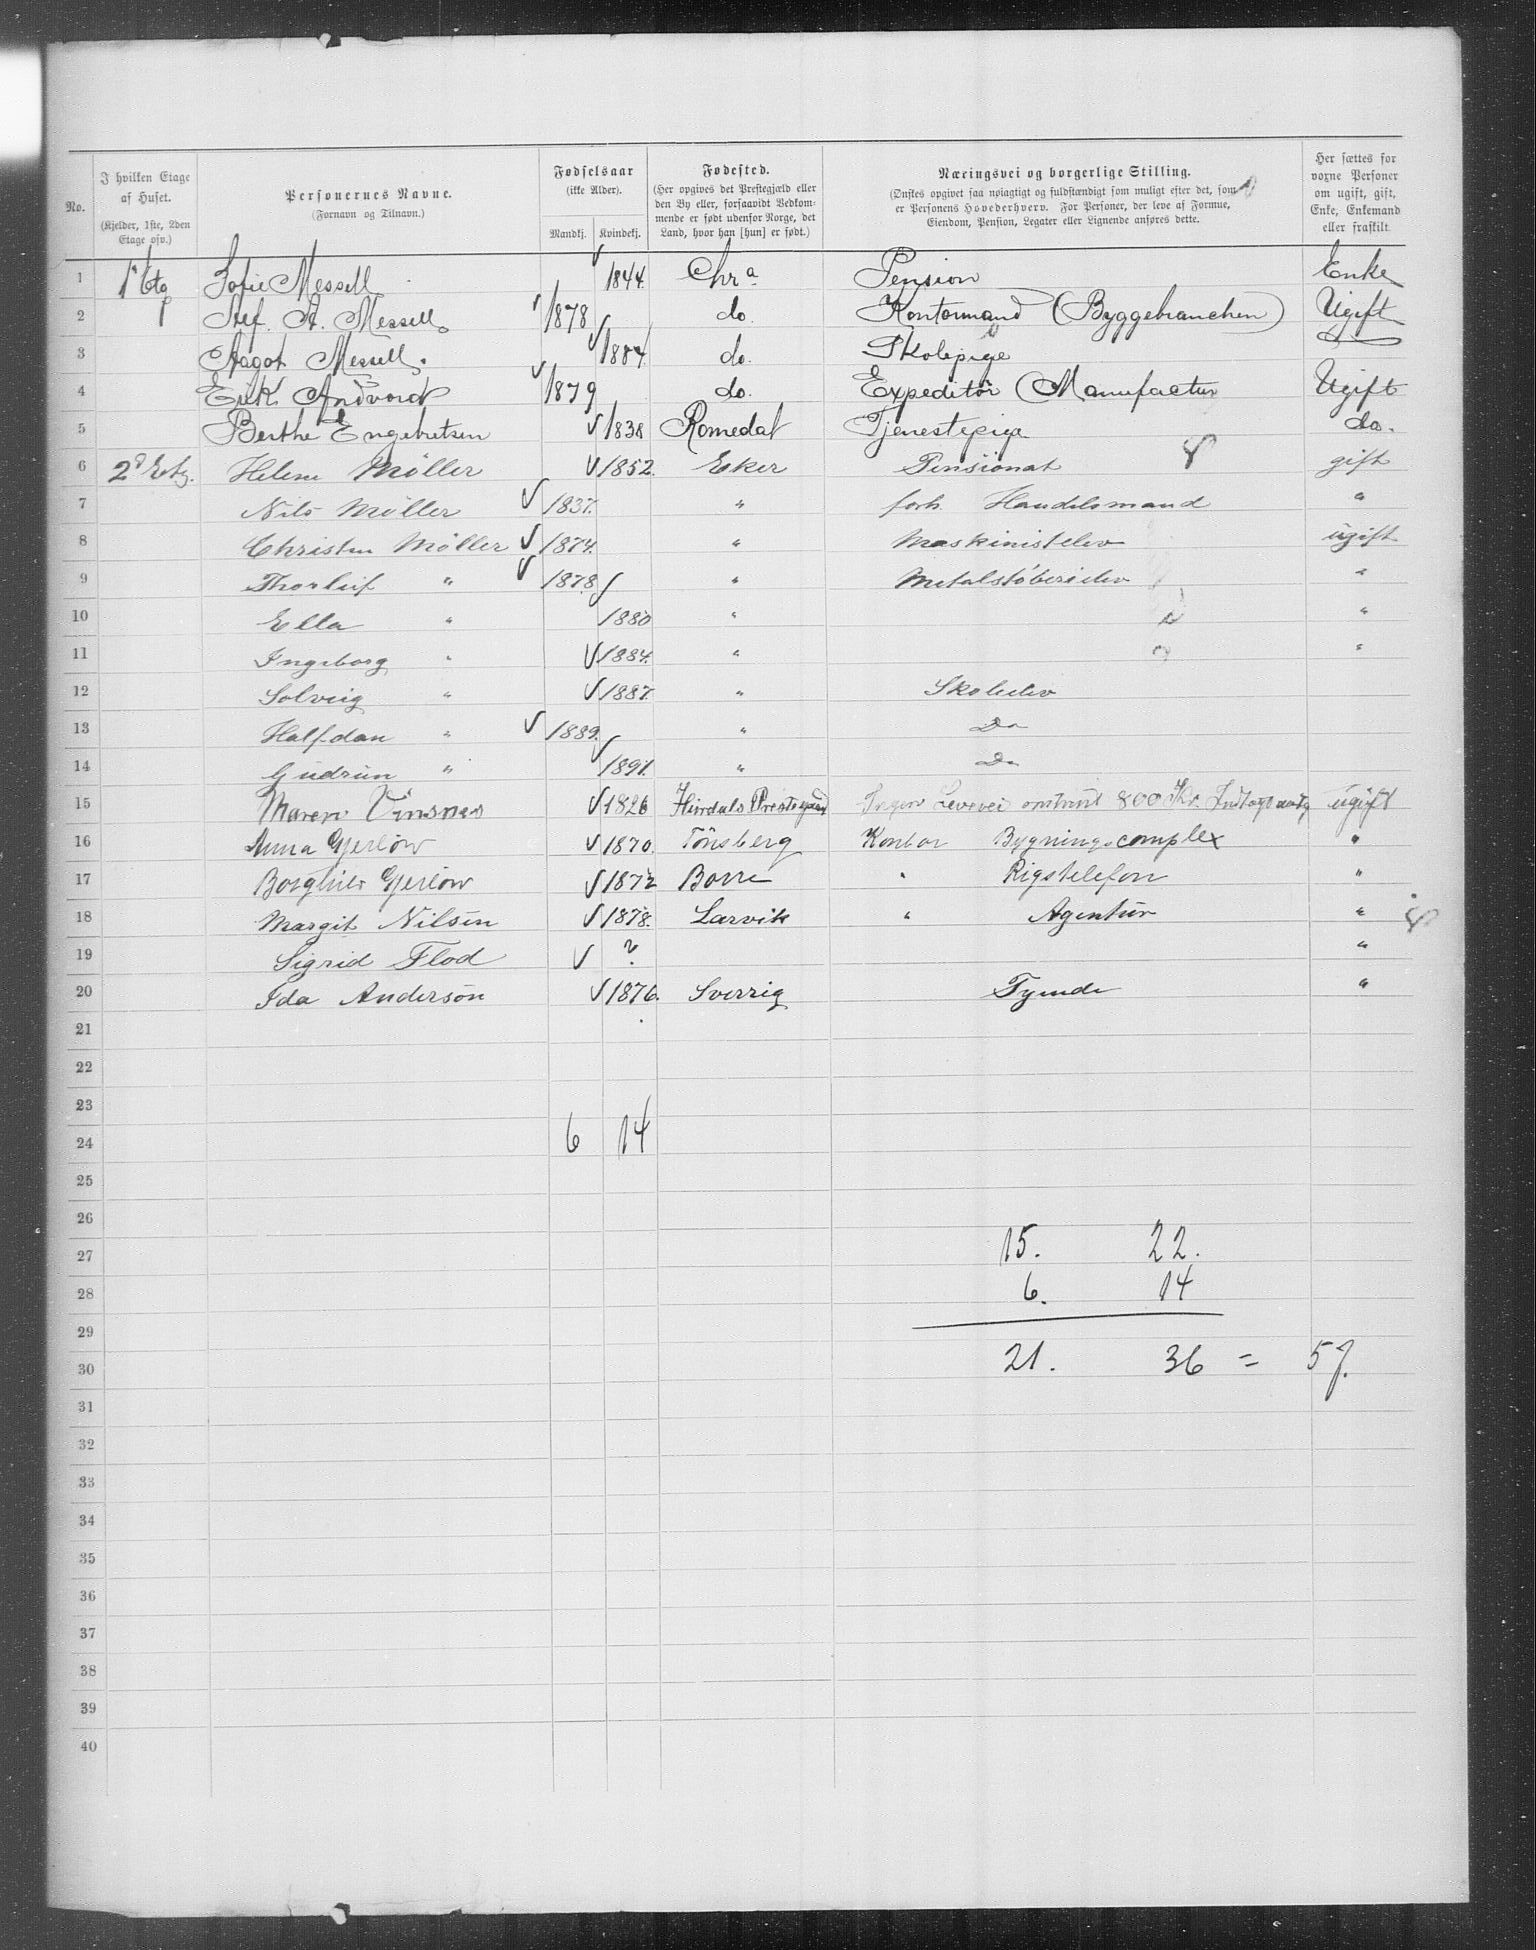 No. | I hvilken Etage af Huset. (Kjelder, 1ste, 2den Etage osv.) | Personernes Navne. (Fornavn og Tilnavn.) | Fødselsaar (ikke Alder). Mandkj. Kvindekj. | Fødested. (Her opgives det Prestegjæld eller den By eller, forsaavidt Vedkommende er født udenfor Norge, det Land, hvor han [hun] er født.) | Næringsvei og borgerlige Stilling. (Ønskes opgivet saa nøiagtigt og fuldstændigt som muligt efter det, som er Personens Hovederhverv. For Personer, der leve af Formue, Eiendom, Pension, Legater eller Lignende anføres dette. | Her sættes for voxne Personer om ugift, gift, Enke, Enkemand eller fraskilt.
1 1ste Etg Sofie Messell 1844. Chr.a Pension Enke
2 Stef. A. Messell 1878 do. Kontormand (Byggebranchen) Ugift
3 Aagot Messell. 1884 do. Skolepige
4 Erik Andvord 1879 do. Expeditør (Manufactur Ugift
5 Berthe Engebretsen 1838 Romedal Tjenestepige do.
6 2d Etg. Helene Møller 1852. Eker Pensionat gift
7 Nils Møller 1837. " forh. Handelsmand "
8 Christen Møller 1874. " Maskinistelev ugift
9 Thorleif " 1878. " Metalstøberielev "
10 Ella " 1880 " "
11 Ingeborg " 1884. " "
12 Solveig " 1887. " Skoleelev
13 Halfdan " 1889. " Do
14 Gudrun " 1891. " Do
15 Maren Vinsnes 1826 Prestegjæld Ingen Levevei omtrent 800 Kr. ugift
16 Anna Gjerløw 1870. Tönsberg Kontor Bygningscomplex "
17 Borghild Gjerløw 1872 Borre " Rigstelefon "
18 Margit Nilsen 1878. Larvik " Agentur "
19 Sigrid Flod ? "
20 Ida Anderson 1876. Sverrig Tyende "
21
22
23
24 6 14
25
26
27 15. 22.
28 6. 14
29
30 21. 36 = 57.
31
32
33
34
35
36
37
38
39
40